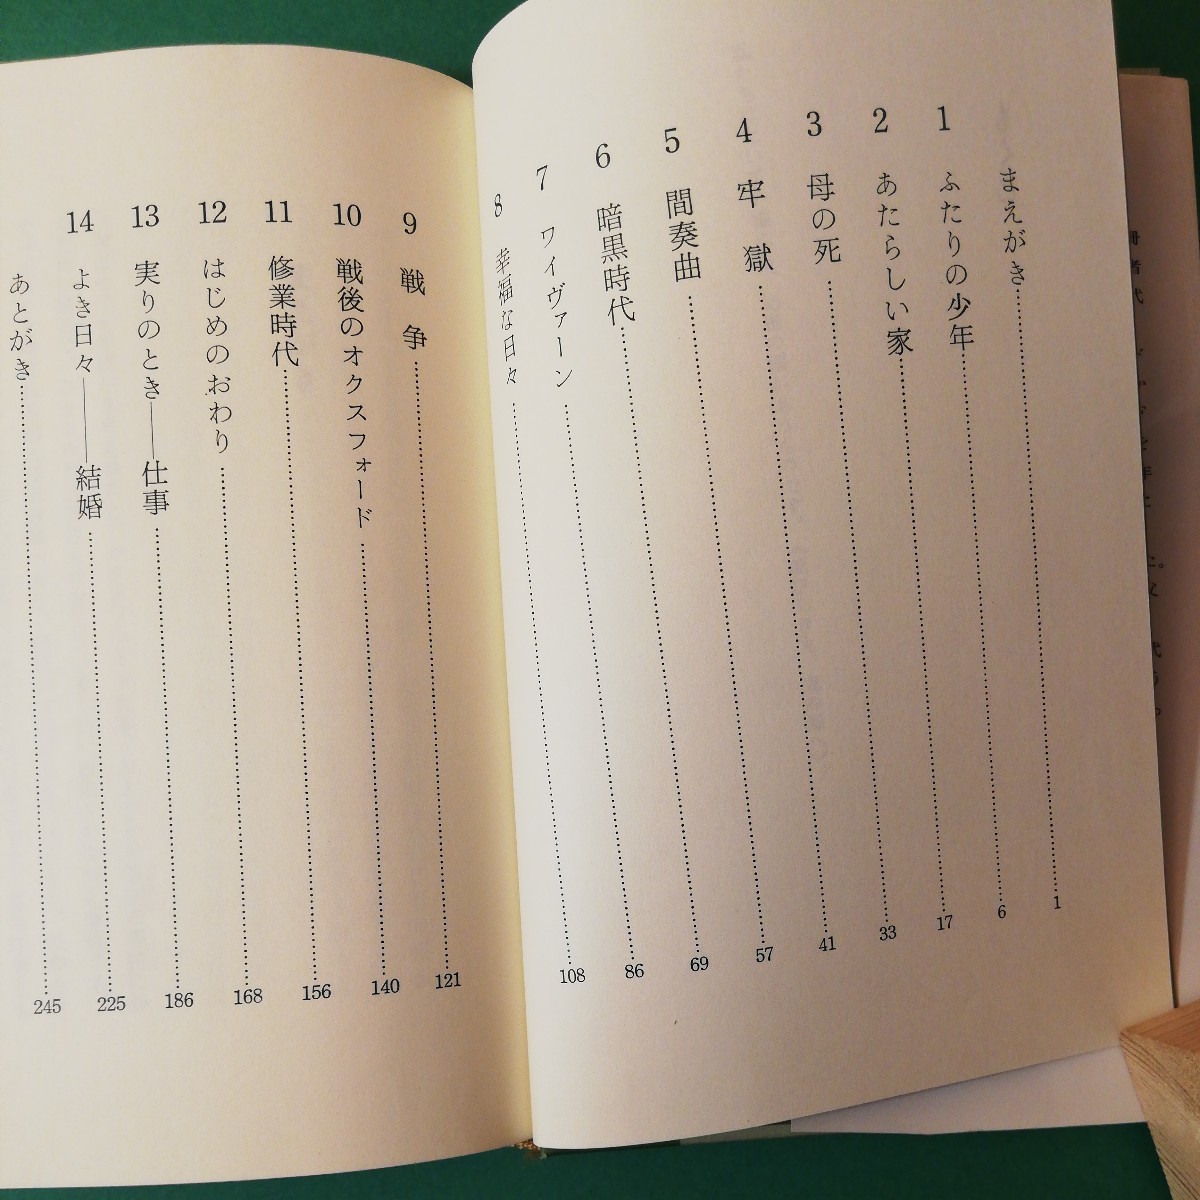 まえがき……1
1 ふたりの少年……6
2 あたらしい家……17
3 母の死……33
4 牢獄……41
5 間奏曲……57
6 暗黒時代……69
7 ワイヴァーン……86
8 幸福な日々……108
9 戦争……121
10 戦後のオクスフォード……140
11 修業時代……156
12 はじめのおわり……168
13 実りのとき――仕事……186
14 よき日々――結婚……225
あとがき……245